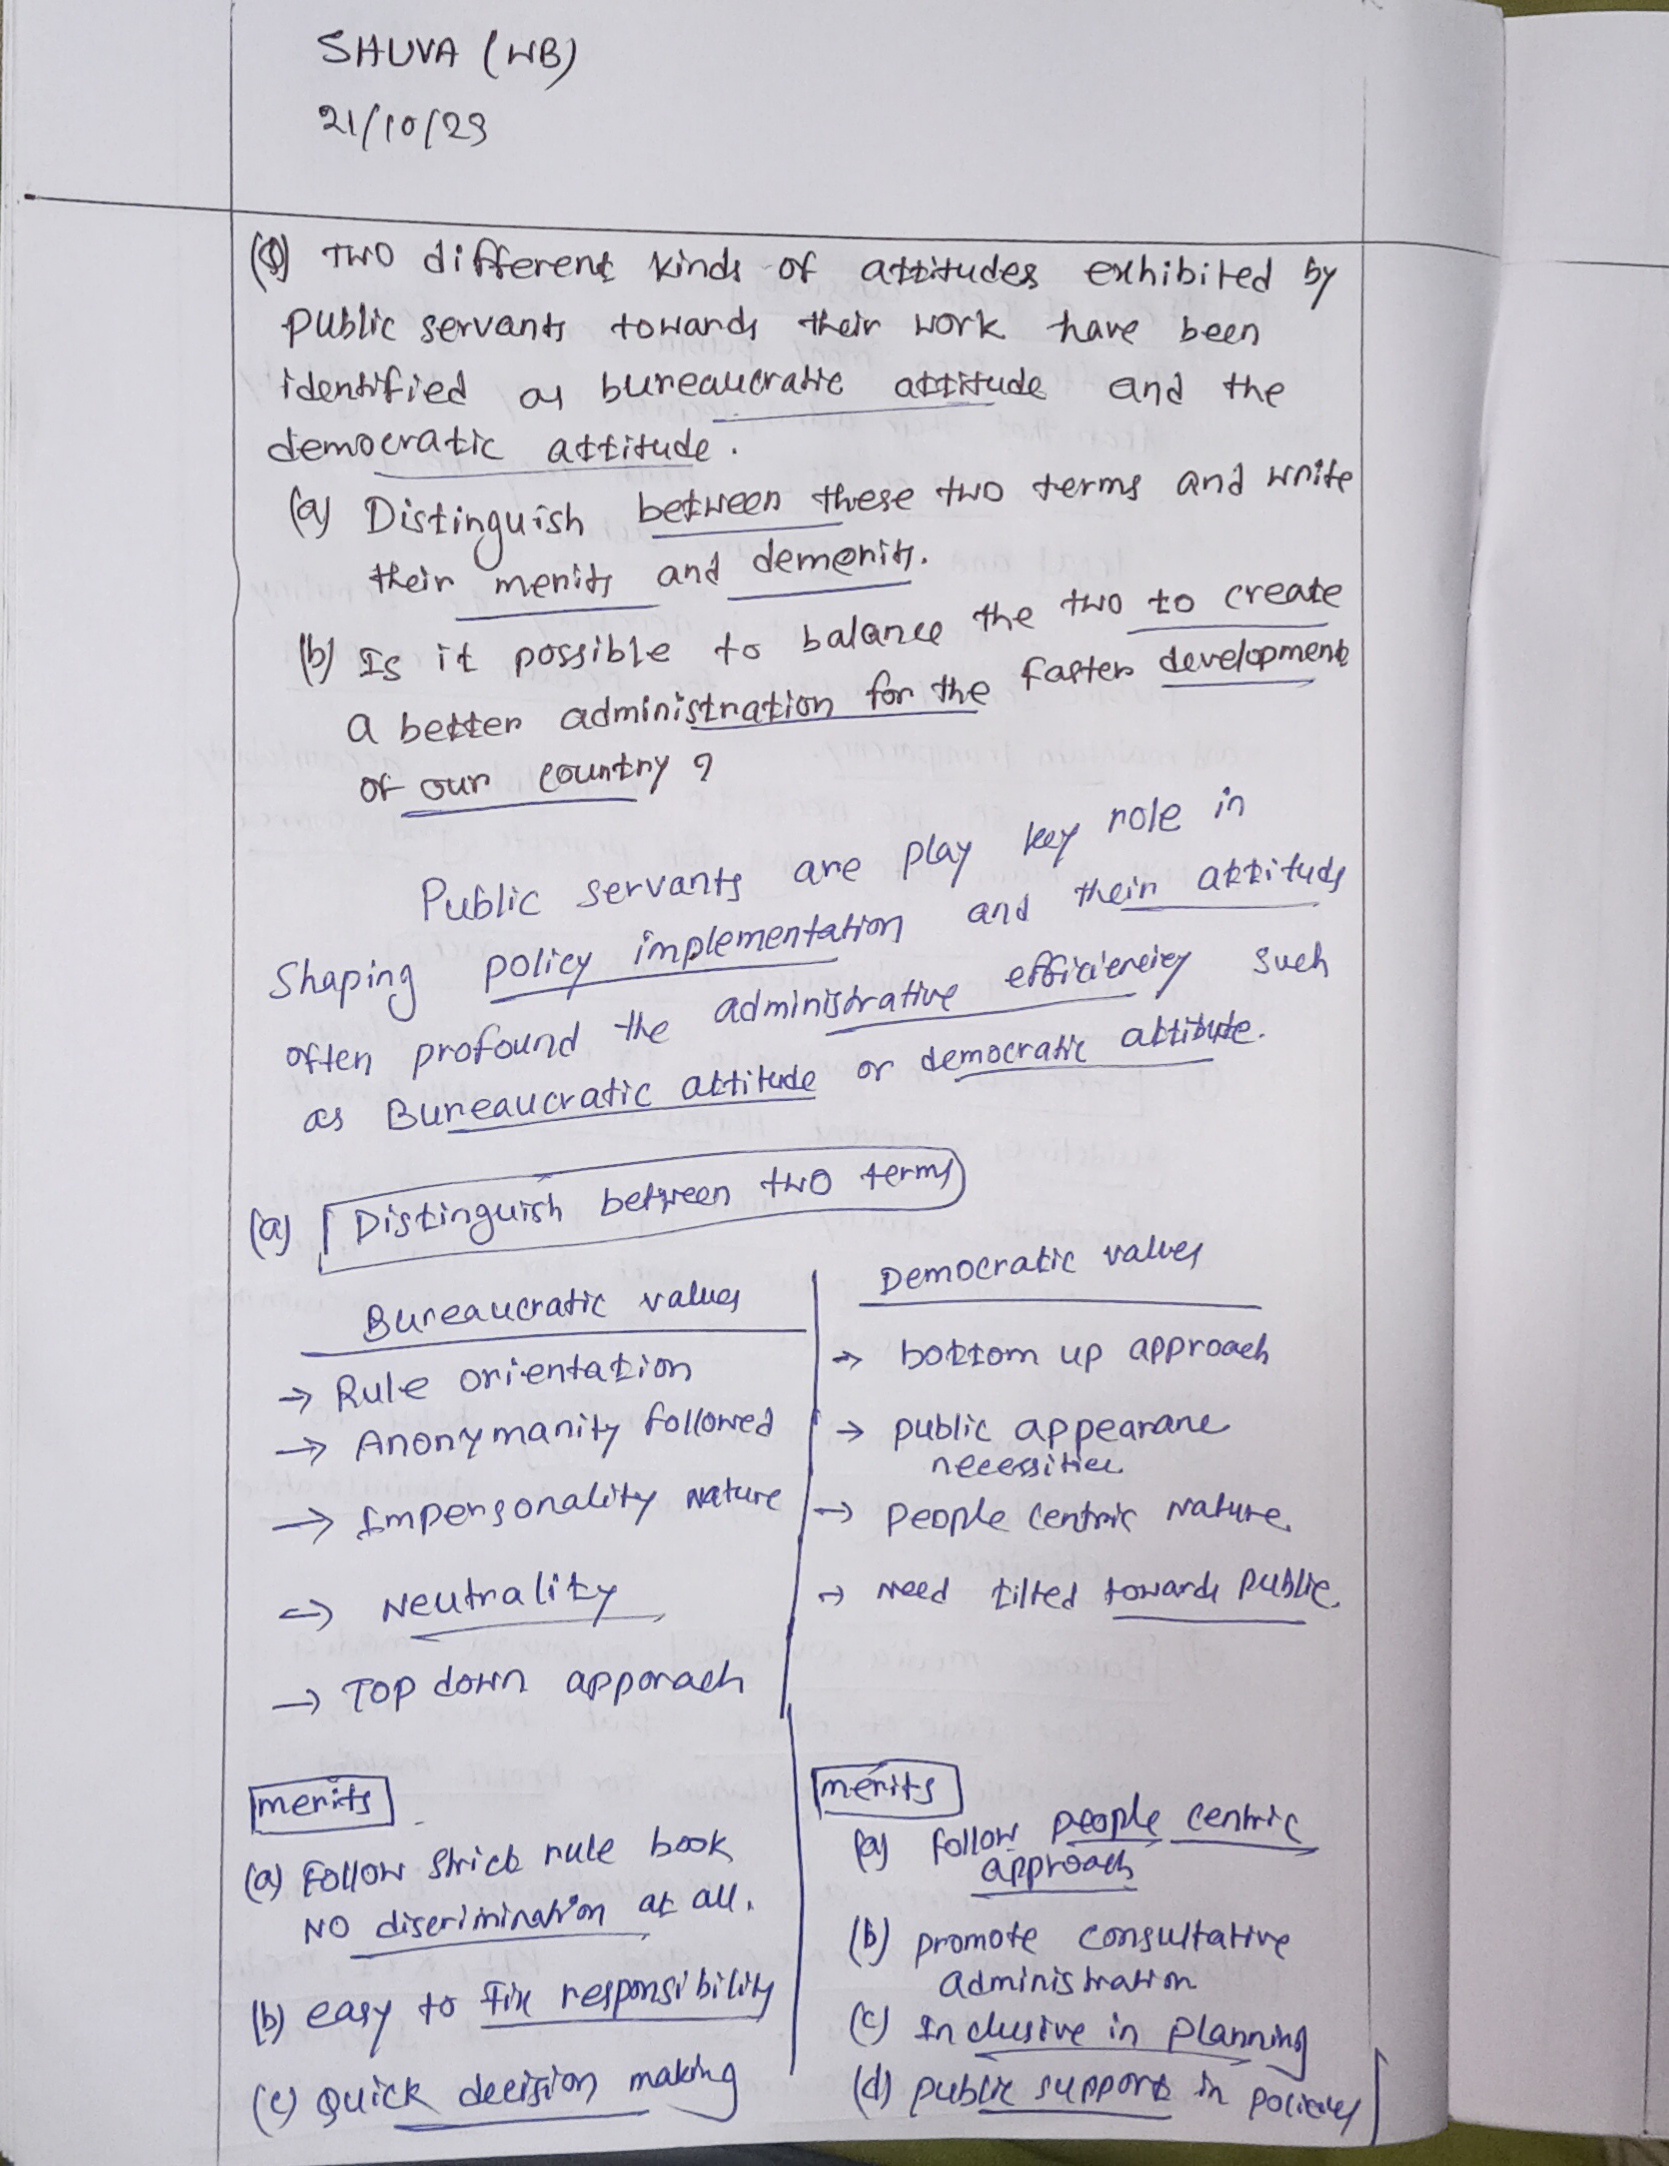 SHUVA (WB)
21/10/23
(Q) TWO different kinds of attitudes exhibited by
public servants towards their work have been
identified as bureaucratic attitude and the
democratic attitude.
(a) Distinguish between these two terms and write
their merits and demerits.
(b) Is it possible to balance the two to create
a better administration for the faster development
of our country?
Public servants are play key role in
shaping policy implementation and their attituds
often profound the administrative efficienciey such
as Bureaucratic attitude or democratic attitute.
(a) Distinguish between two terms
Bureaucratic values
→ Rule orientation
→ Anonymanity followed
→ Impersonality Nature
→ Neutrality
→ TOP down apporach
Democratic values
→ bottom up approach
→ public appearane
necessities
→ people centric Nature.
→ Need tilted towards public.
merits
(a) Follow Strict rule book
NO discrimination at all.
(b) easy to fix responsibility
(c) Quick decision making
merits
(a) follow people centric
approach
(b) promote consultative
administration
(c) Inclusive in planning
(d) public support in policies